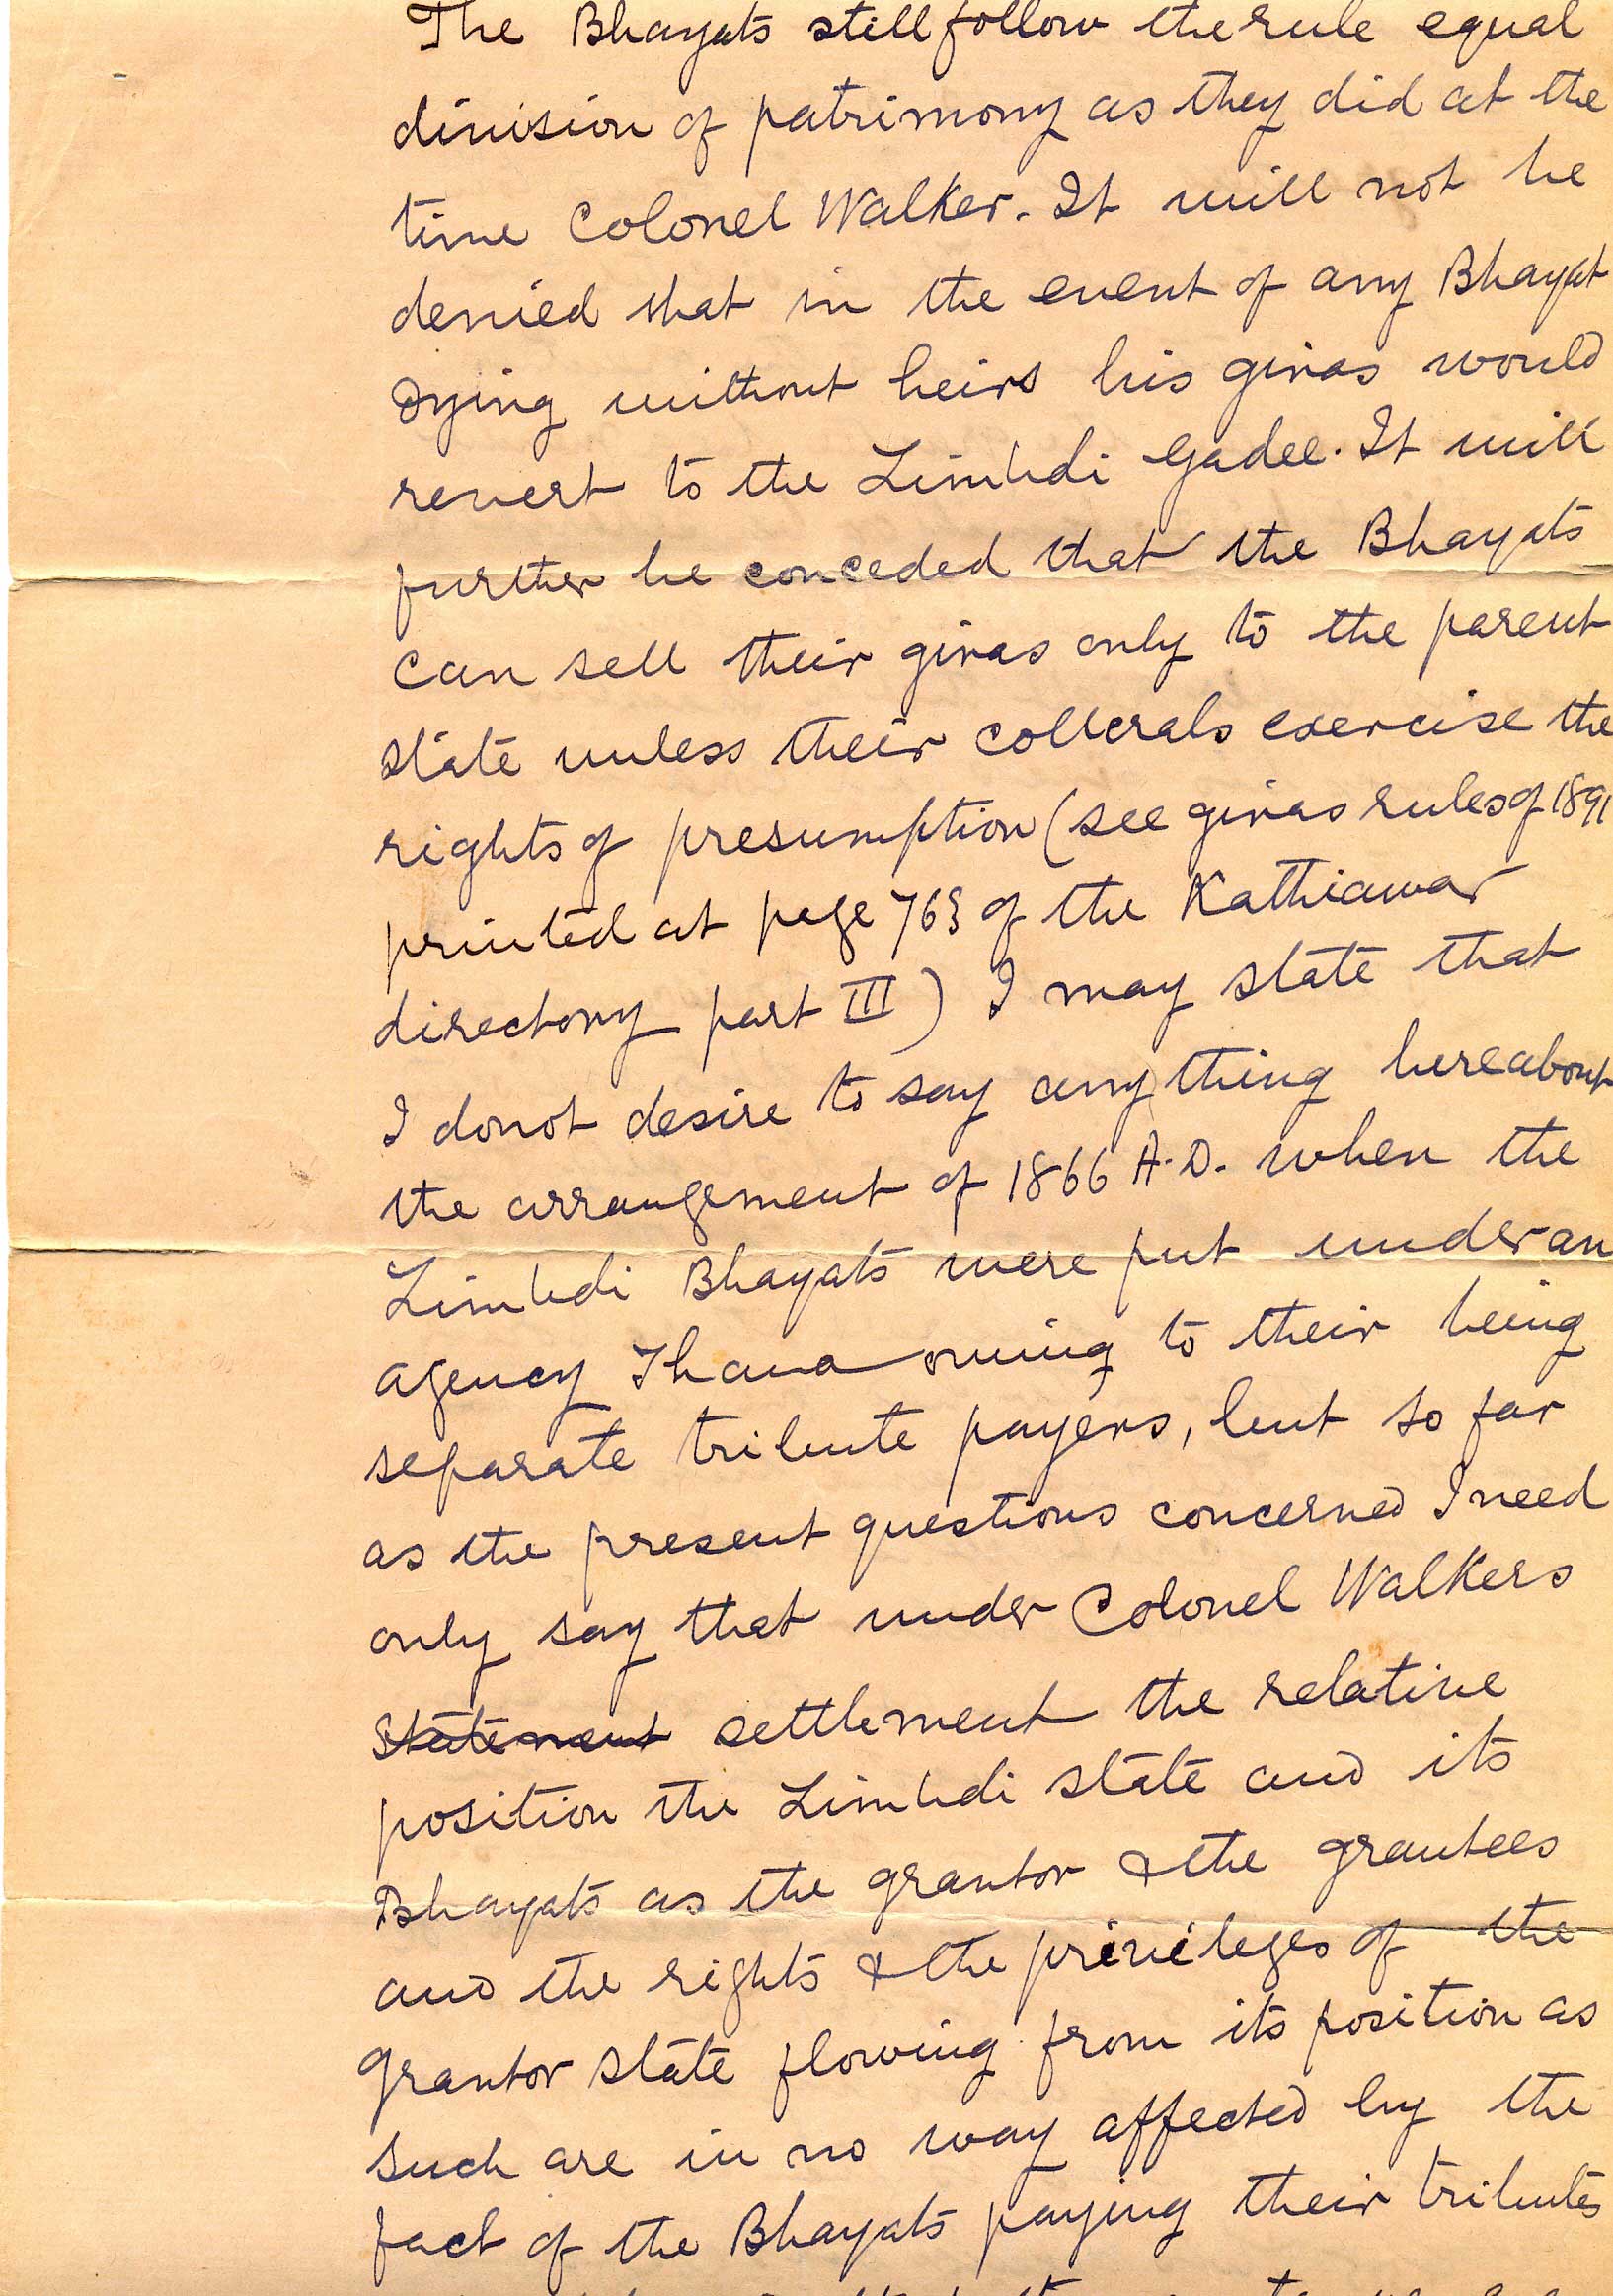 The Bhayats still follow the rule equal
division of patrimony as they did at the
time Colonel Walker. It will not be
denied that in the event of any Bhayat
dying without heirs his giras would
revert to the Limbdi Gadee. It will
further be conceded that the Bhayats
can sell their giras only to the parent
state unless their collerals exercise the
rights of presumption (see giras rules of 1891
printed at page 763 of the Kathiawar
directory part III) I may state that
I donot desire to say any thing hereabout
the arrangement of 1866 A.D. when the
Limbdi Bhayats were put under an
agency Thana owing to their being
separate tribute payers, but so far
as the present questions concerned I need
only say that under Colonel Walkers
Statement settlement the relative
position the Limbdi state and its
Bhayats as the grantor & the grantees
and the rights & the privileges of the
grantor state flowing from its position as
such are in no way affected by the
fact of the Bhayats paying their tributes